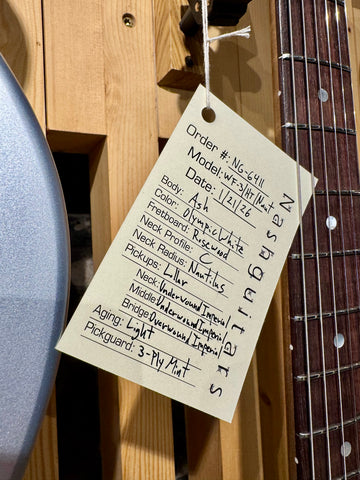 Order #: NG-6411
Model: WF-3/HT/Naut
Date: 1/21/26
Body: Ash
Color: Olympic White
Fretboard: Rosewood
Neck Profile: C
Neck Radius: Nautilus
Pickups: Lollar
Neck: Underwound Imperial
Middle: Underwound Imperial
Bridge: Overwound Imperial
Aging: Light
Pickguard: 3-Ply Mint
Nashguitars